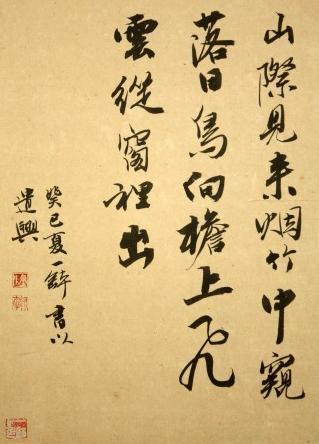 山際見来烟竹中窺
落日鳥向檐上飛
雲從窗裡出
癸巳夏一書以
遣興